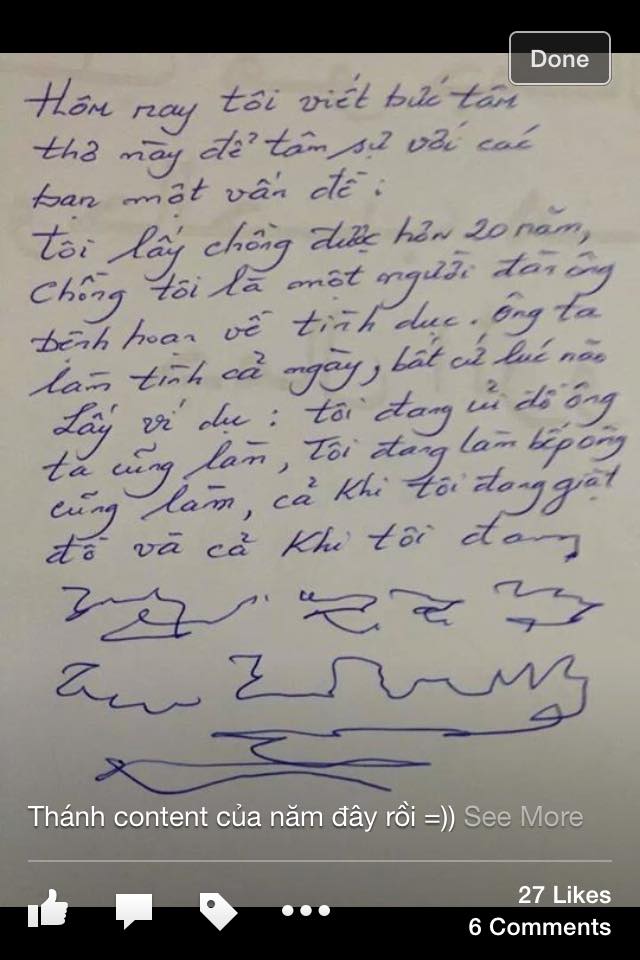 Done
Hôm nay tôi viết bức tâm
thơ này để tâm sự với các
bạn một vấn đề :
Tôi lấy chồng được hơn 20 năm,
chồng tôi là một người đàn ông
bệnh hoạn về tình dục. Ông ta
làm tình cả ngày, bất cứ lúc nào
Lấy ví dụ : tôi đang ủi đồ ông
ta cũng làm, Tôi đang làm bếp ông
cũng làm, cả khi tôi đang giặt
đồ và cả khi tôi đang
Thánh content của năm đây rồi =)) See More
27 Likes
6 Comments